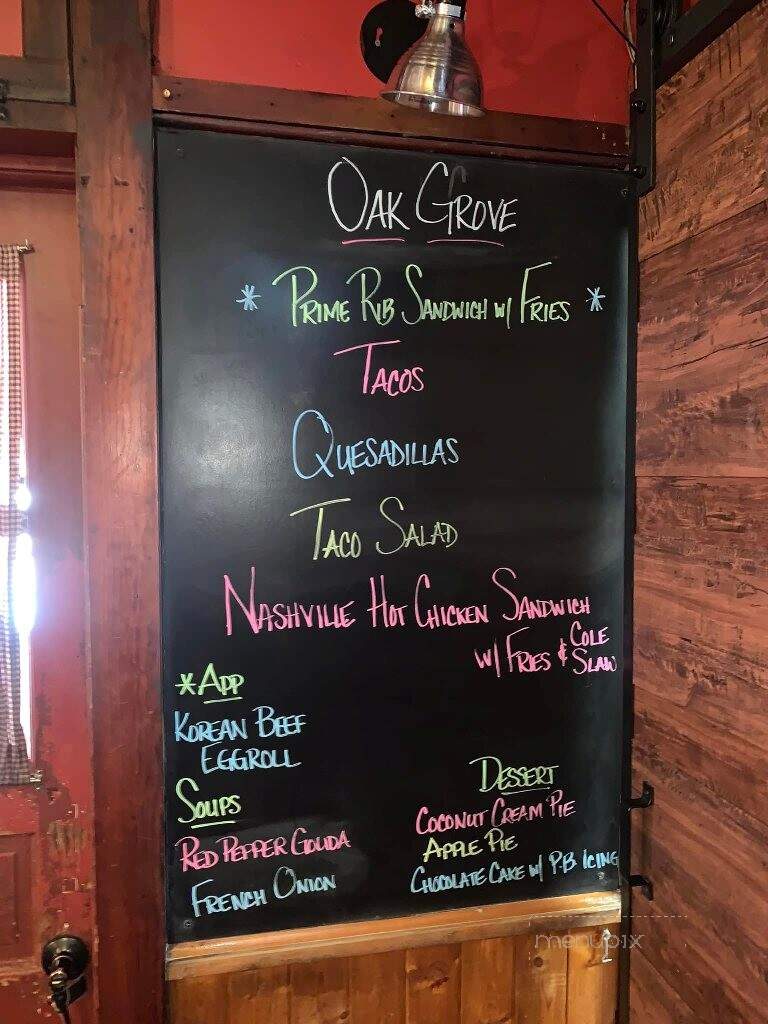 Oak Grove
* Prime Rib Sandwich w/ Fries *
Tacos
Quesadillas
Taco Salad
Nashville Hot Chicken Sandwich
w/ Fries & Cole
Slaw
*App
Korean Beef
Eggroll
Soups
Red Pepper Gouda
French Onion
Dessert
Coconut Cream Pie
Apple Pie
Chocolate Cake w/ P.B Icing
menupix